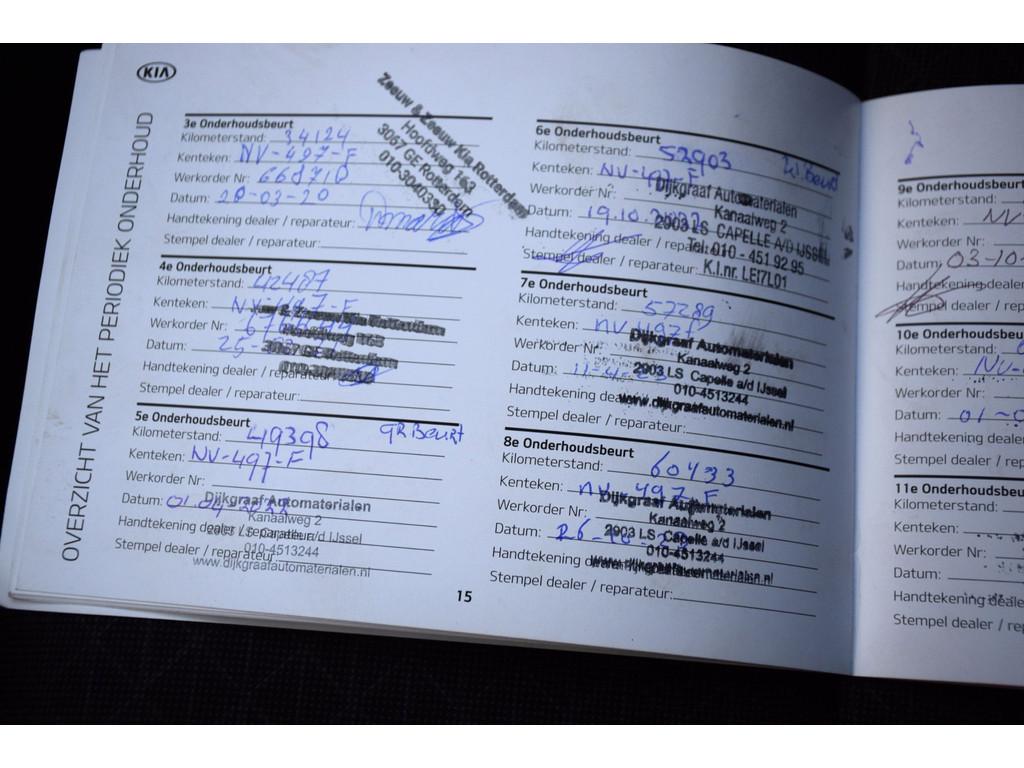 KIA
OVERZICHT VAN HET PERIODIEK ONDERHOUD
3e Onderhoudsbeurt
Kilometerstand: 34124
Kenteken: NV-497-F
Werkorder Nr: 668710
Datum: 20-03-20
Handtekening dealer / reparateur:
Stempel dealer / reparateur:
Zeeuw & Zeeuw Kia Rotterdam
Hoofdweg 163
3067 GE Rotterdam
4e Onderhoudsbeurt
Kilometerstand: 42487
Kenteken: NV-497-F
Werkorder Nr:
Datum: 25-
Handtekening dealer / reparateur:
Stempel dealer / reparateur:
5e Onderhoudsbeurt
Kilometerstand: 49398 GR Beurt
Kenteken: NV-497-F
Werkorder Nr:
Datum: 01.04
Dijkgraaf Automaterialen
Kanaalweg 2
Handtekening dealer / reparateur:
2903 LS Capelle a/d IJssel
010-4513244
Stempel dealer / reparateur
www.dijkgraafautomaterialen.nl
6e Onderhoudsbeurt
Kilometerstand: 52903
Kenteken: NV-497-F
Werkorder Nr:
Dijkgraaf Automaterialen
Kanaalweg 2
Datum: 19.10.2022
2903 LS CAPELLE A/D IJSSEL
Handtekening dealer / reparateur:
Tel. 010 - 451 92 95
Stempel dealer / reparateur:
K.I.nr. LEI7L01
7e Onderhoudsbeurt
Kilometerstand: 57289
Kenteken: NV497F
Werkorder Nr:
Dijkgraaf Automaterialen
Kanaalweg 2
Datum: 11-4-23
2903 LS Capelle a/d IJssel
010-4513244
Handtekening dealer
www.dijkgraafautomaterialen.nl
Stempel dealer / reparateur:
8e Onderhoudsbeurt
Kilometerstand: 60433
Kenteken: NV 497 F
Werkorder Nr:
Dijkgraaf Automaterialen
Kanaalweg 2
Datum: 26-10-23
2903 LS Capelle a/d IJssel
010-4513244
Handtekening
www.dijkgraafautomaterialen.nl
Stempel dealer / reparateur:
15
9e Onderhoudsbeurt
Kilometerstand:
Kenteken: NV
Werkorder Nr:
Datum: 03-10-
Handtekening dealer
Stempel dealer / rep
10e Onderhoudsbeu
Kilometerstand:
Kenteken: NV-
Werkorder Nr:
Datum: 01-
Handtekening deale
Stempel dealer / rep
11e Onderhoudsbeu
Kilometerstand:
Kenteken:
Werkorder Nr:
Datum:
Handtekening deale
Stempel dealer / rep